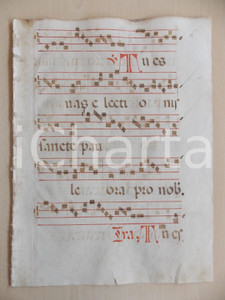 Tu es
vas e lecti o nis
sancte pau
le ora pro nob.
Tra, Tu es
iCharta